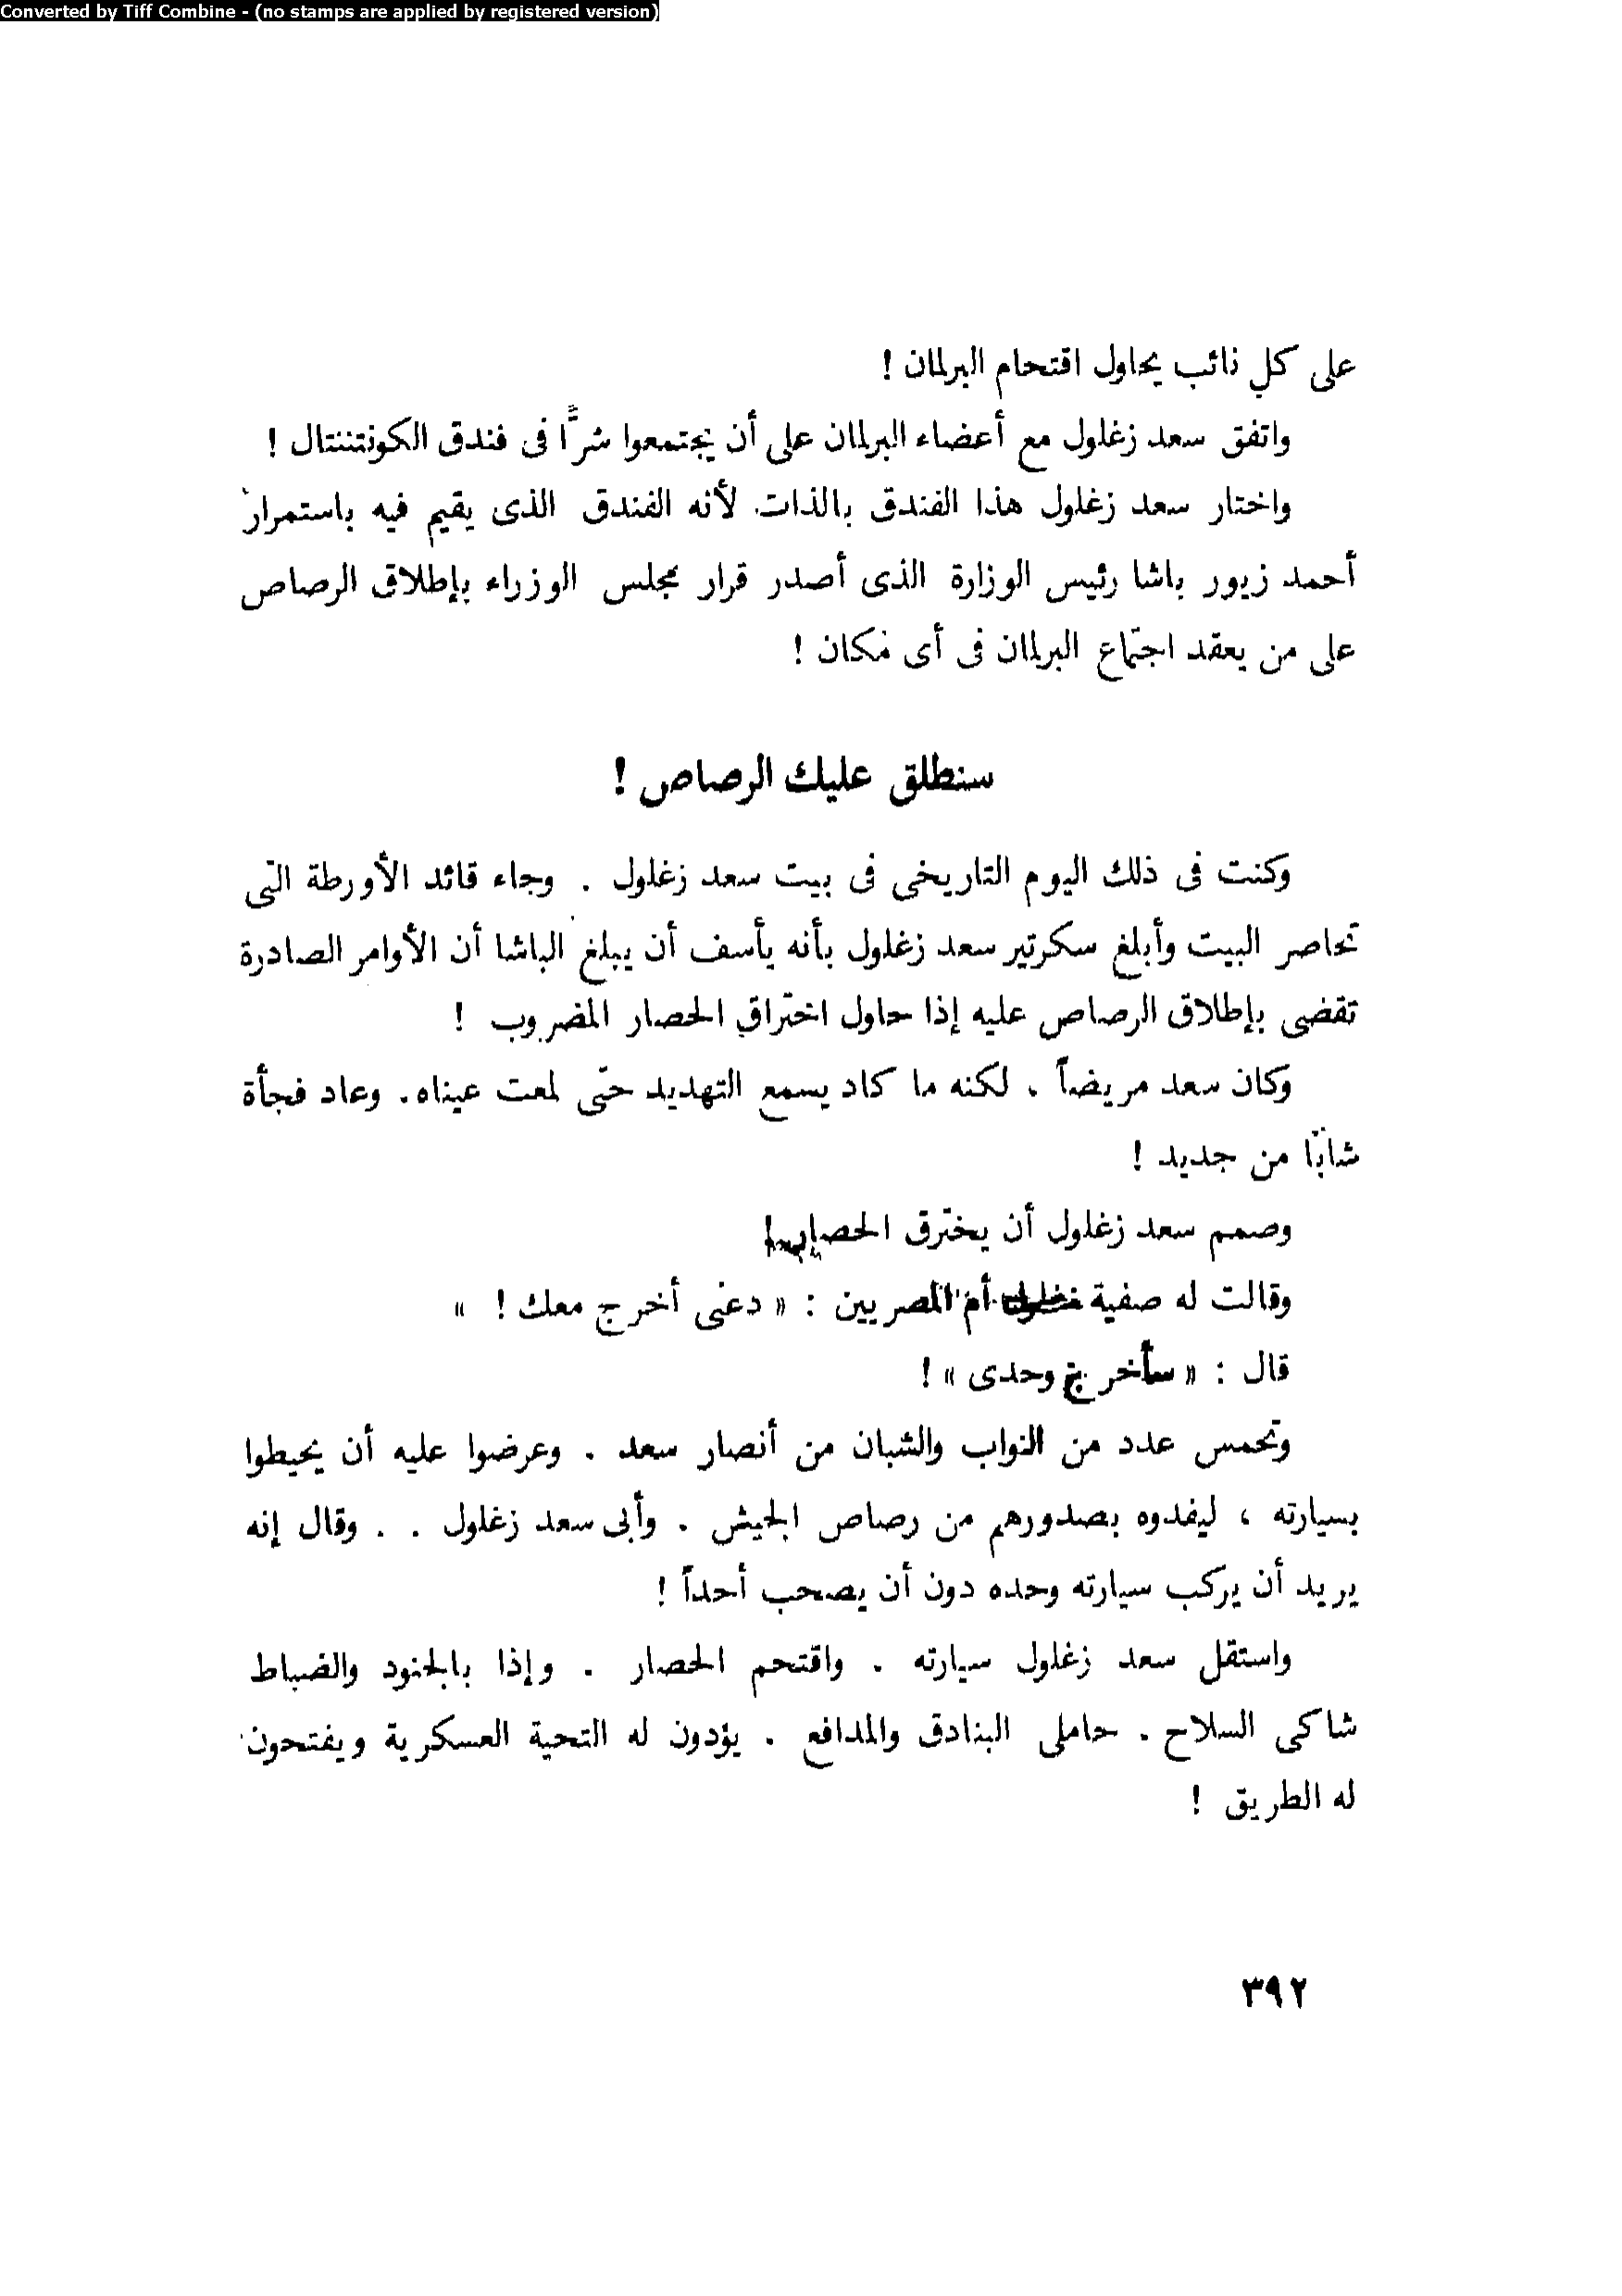 Converted by Tiff Combine - (no stamps are applied by registered version)
على كل نائب يحاول اقتحام البرلمان !
واتفق سعد زغلول مع أعضاء البرلمان على أن يجتمعوا شرًّا فى فندق الكونتننتال !
واختار سعد زغلول هذا الفندق بالذات لأنه الفندق الذى يقيم فيه باستمرار
أحمد زيور باشا رئيس الوزارة الذى أصدر قرار مجلس الوزراء بإطلاق الرصاص
على من يعقد اجتماع البرلمان فى أى مكان !
سنطلق عليك الرصاص !
وكنت فى ذلك اليوم التاريخى فى بيت سعد زغلول . وجاء قائد الأورطة التى
تحاصر البيت وأبلغ سكرتير سعد زغلول بأنه يأسف أن يبلغ الباشا أن الأوامر الصادرة
تقضى بإطلاق الرصاص عليه إذا حاول اختراق الحصار المضروب !
وكان سعد مريضاً . لكنه ما كاد يسمع التهديد حتى لمعت عيناه . وعاد فجأة
شابًّا من جديد !
وصمم سعد زغلول أن يخترق الحصار !
وقالت له صفية زغلول أم المصريين : « دعنى أخرج معك ! »
قال : « سأخرج وحدى » !
وتحمس عدد من النواب والشبان من أنصار سعد . وعرضوا عليه أن يحيطوا
بسيارته ، ليفدوه بصدورهم من رصاص الجيش . وأبى سعد زغلول . . وقال إنه
يريد أن يركب سيارته وحده دون أن يصحب أحداً !
واستقل سعد زغلول سيارته . واقتحم الحصار . وإذا بالجنود والضباط
شاكى السلاح . حاملى البنادق والمدافع . يؤدون له التحية العسكرية ويفتحون
له الطريق !
٣٩٢